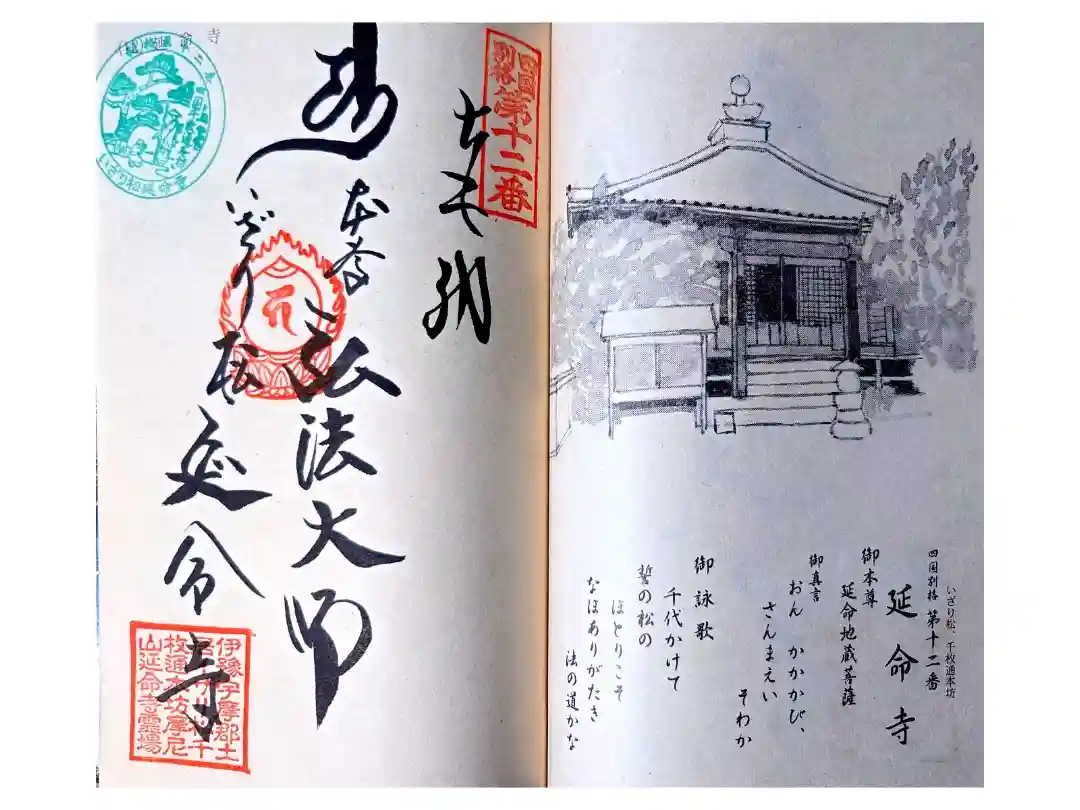 いざり松、千枚通本坊
四国別格 第十二番
延命寺
御本尊
延命地蔵菩薩
御真言
おん かかかび、
さんまえい
そわか
御詠歌
千代かけて
誓の松の
ほとりこそ
なほありがたき
法の道かな
四国
別格
第十二番
本尊
弘法大師
いざり松
延命寺
いざり松延命寺
伊豫宇摩郡土
千
枚通本坊摩尼
山延命寺靈場